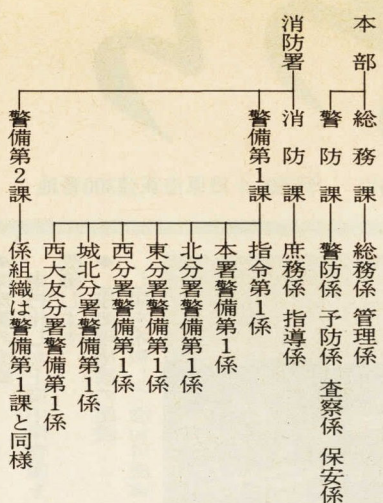 本部
総務課
総務係 管理係
警防課
警防係 予防係 査察係 保安係
消防署
消防課
庶務係 指導係
警備第1課
指令第1係
本署警備第1係
北分署警備第1係
東分署警備第1係
西分署警備第1係
城北分署警備第1係
西大友分署警備第1係
警備第2課
係組織は警備第1課と同様